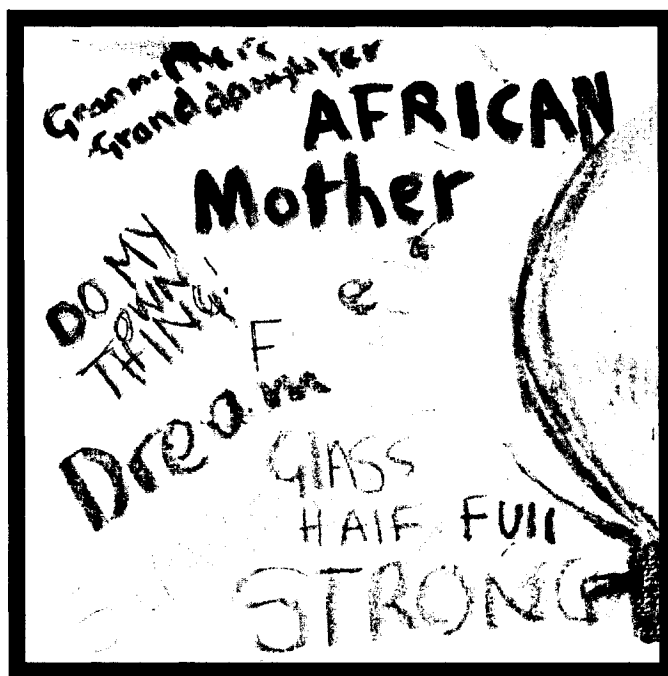 Granmother's
Granddaughter
AFRICAN
Mother
DO MY
OWN
THING!
e
F
Dream
GlASS
HAlF FUll
STRONG